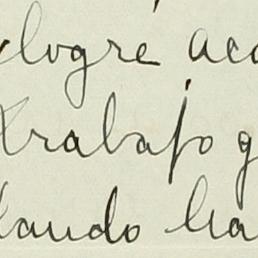 logré aca
trabajo g
ando ha